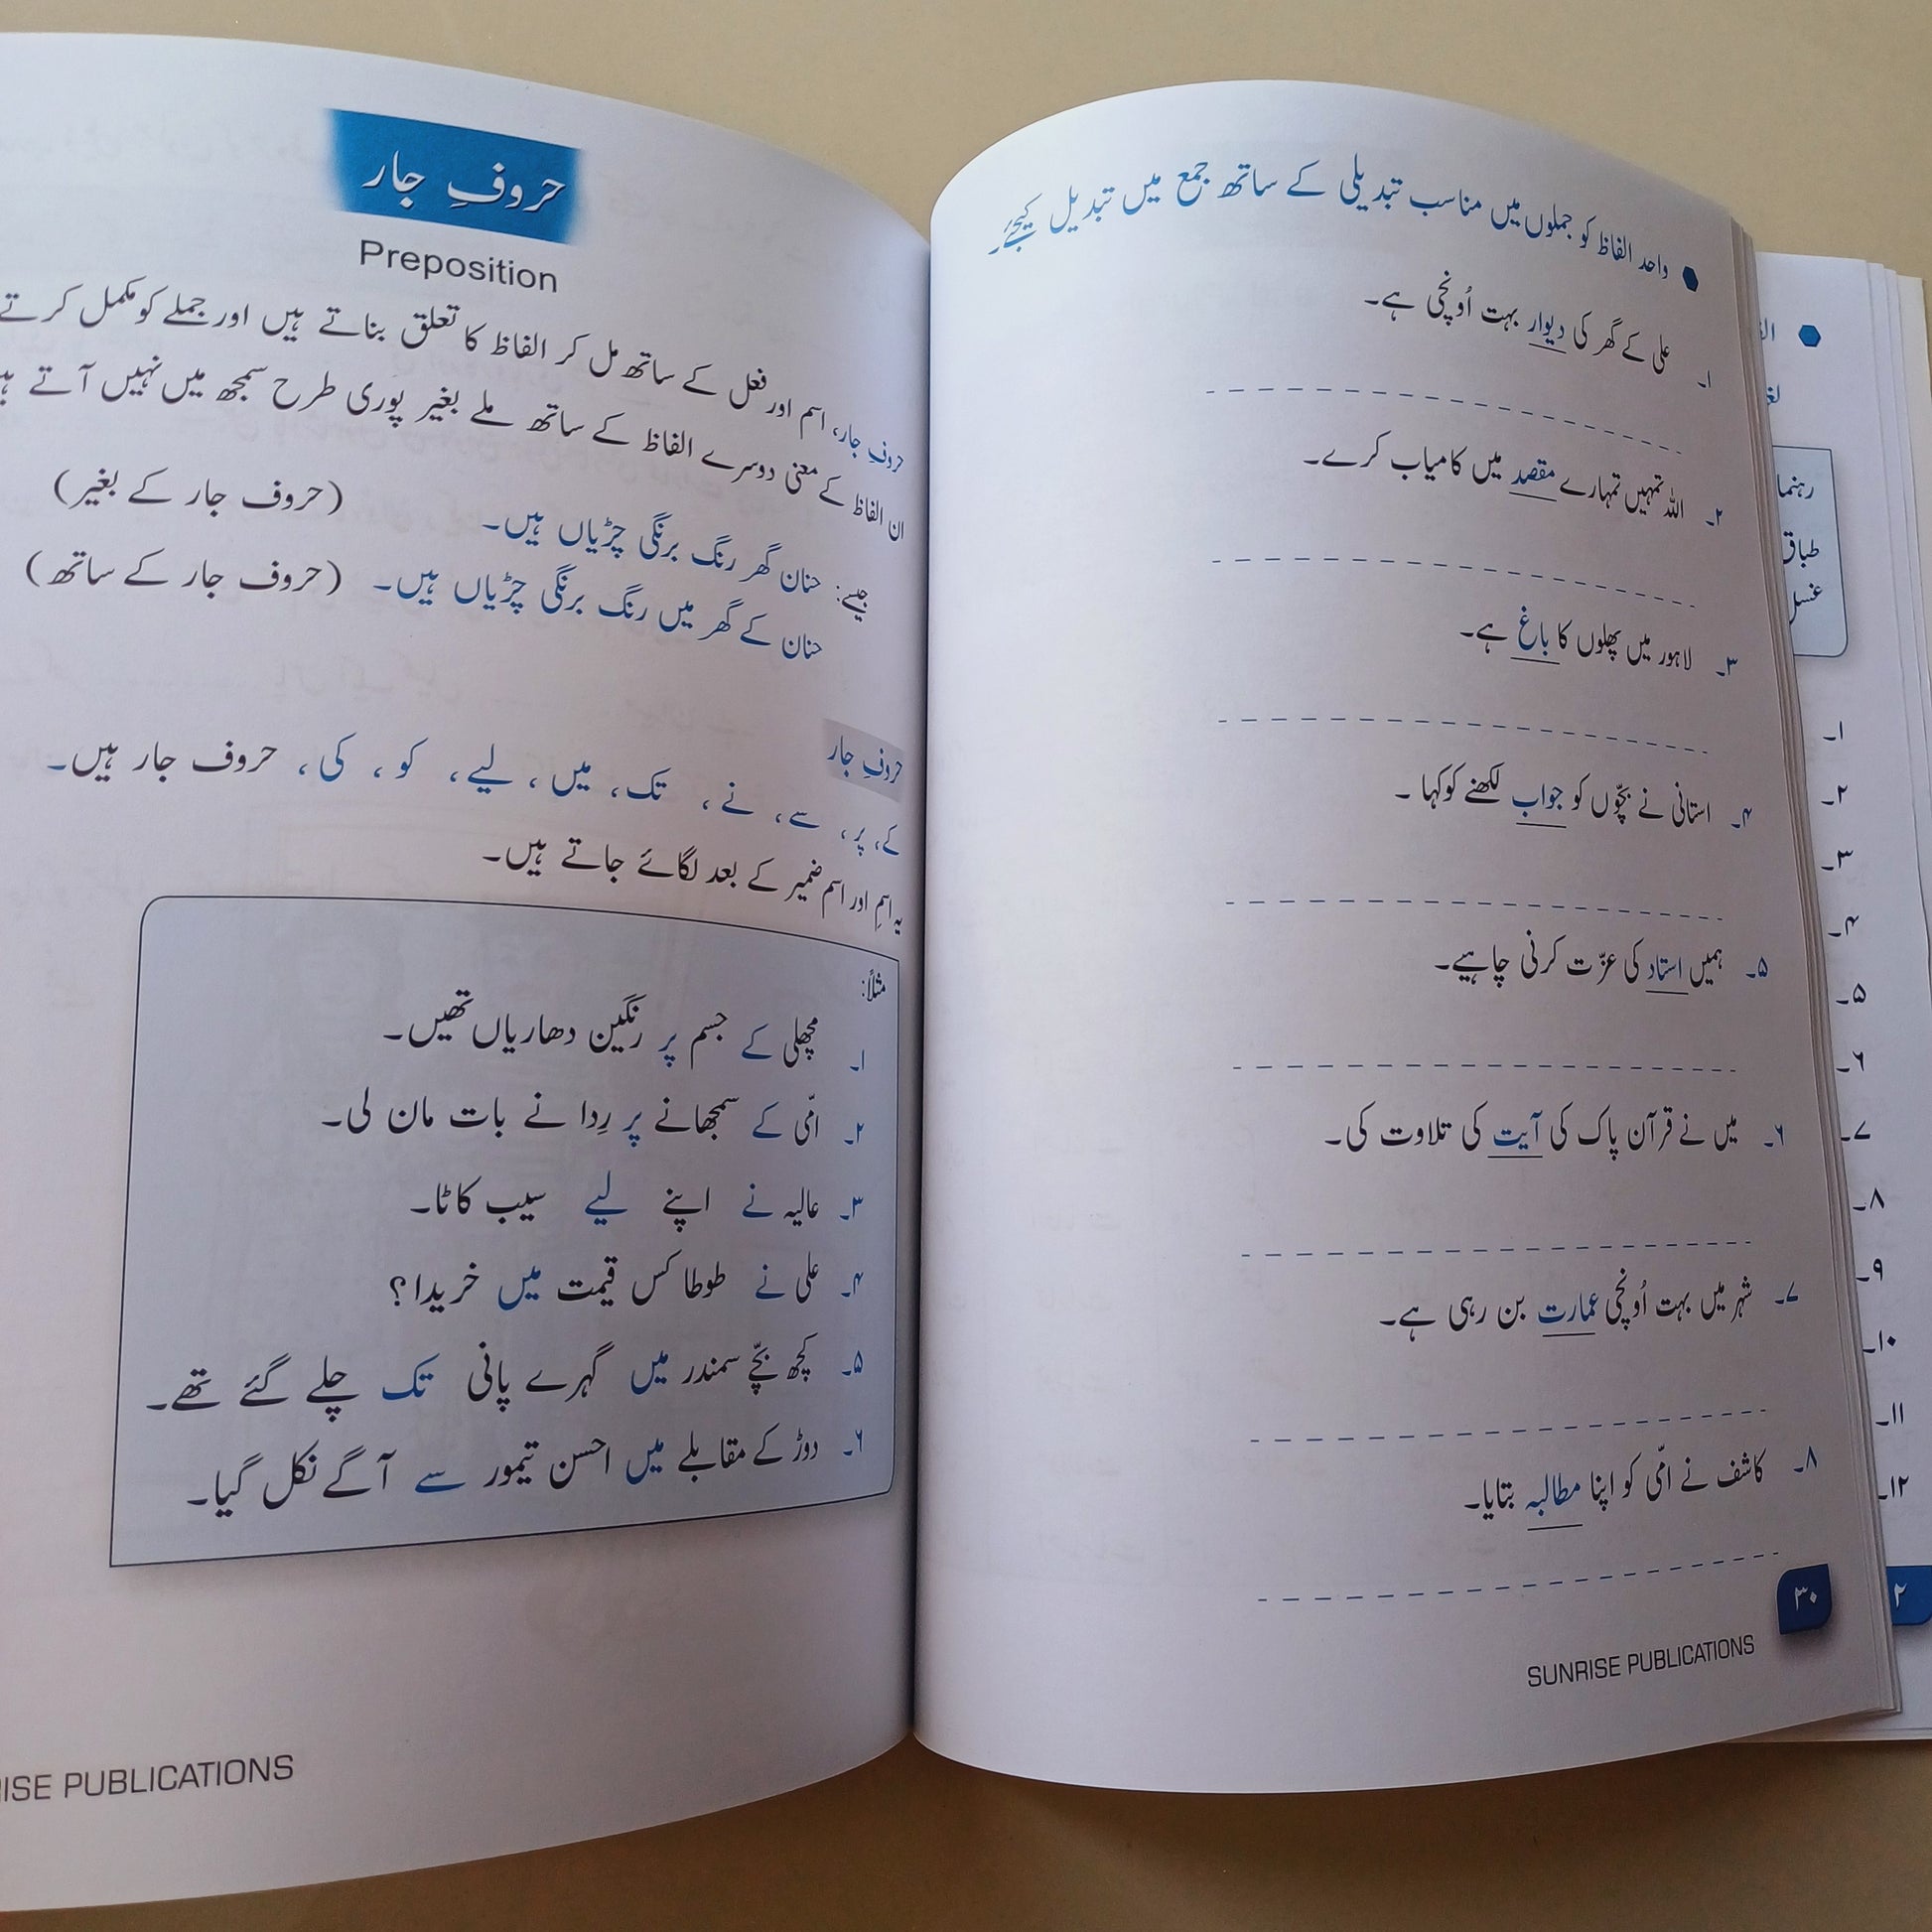 واحد الفاظ کو جملوں میں مناسب تبدیلی کے ساتھ جمع میں تبدیل کیجیے۔
۱۔ علی کے گھر کی دیوار بہت اُونچی ہے۔
۲۔ اللہ تمہیں تمہارے مقصد میں کامیاب کرے۔
۳۔ لاہور میں پھلوں کا باغ ہے۔
۴۔ استانی نے بچّوں کو جواب لکھنے کو کہا ۔
۵۔ ہمیں استاد کی عزّت کرنی چاہیے۔
۶۔ میں نے قرآن پاک کی آیت کی تلاوت کی۔
۷۔ شہر میں بہت اُونچی عمارت بن رہی ہے۔
۸۔ کاشف نے امّی کو اپنا مطالبہ بتایا۔
۳۰
SUNRISE PUBLICATIONS
حروفِ جار
Preposition
حروفِ جار، اسم اور فعل کے ساتھ مل کر الفاظ کا تعلق بناتے ہیں اور جملے کو مکمل کرتے
ان الفاظ کے معنی دوسرے الفاظ کے ساتھ ملے بغیر پوری طرح سمجھ میں نہیں آتے
جیسے: حنان گھر رنگ برنگی چڑیاں ہیں۔ (حروف جار کے بغیر)
حنان کے گھر میں رنگ برنگی چڑیاں ہیں۔ (حروف جار کے ساتھ)
حروفِ جار
کے، پر، سے، نے، تک، میں، لیے، کو، کی، حروف جار ہیں۔
یہ اسم اور اسم ضمیر کے بعد لگائے جاتے ہیں۔
مثلاً:
۱۔ مچھلی کے جسم پر رنگین دھاریاں تھیں۔
۲۔ امّی کے سمجھانے پر رِدا نے بات مان لی۔
۳۔ عالیہ نے اپنے لیے سیب کاٹا۔
۴۔ علی نے طوطا کس قیمت میں خریدا؟
۵۔ کچھ بچّے سمندر میں گہرے پانی تک چلے گئے تھے۔
۶۔ دوڑ کے مقابلے میں احسن تیمور سے آگے نکل گیا۔
RISE PUBLICATIONS
رہنما
طباق
غسل
۱۔
۲۔
۳۔
۴۔
۵۔
۶۔
۷۔
۸۔
۹۔
۱۰۔
۱۱۔
۱۲۔
۲